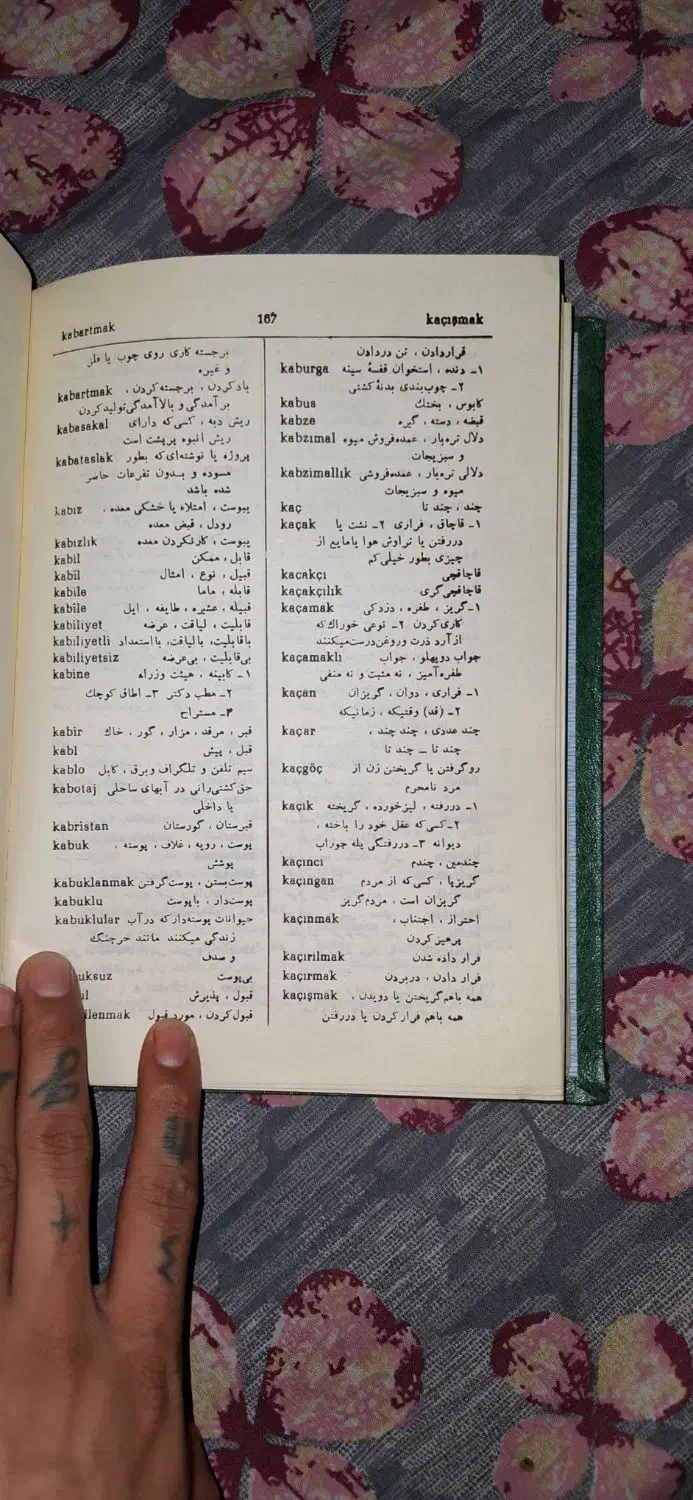 kabartmak 167 kaçışmak
برجسته کاری روی چوب یا فلز
و غیره
kabartmak بادکردن ، برجسته‌کردن ،
برآمدگی و بالاآمدگی‌تولیدکردن
kabasakal ریش دبه ، کسی‌که دارای
ریش انبوه پرپشت است
kabataslak پروژه یا نوشته‌ای‌که بطور
مسوده و بدون تفرعات حاضر
شده باشد
kabız یبوست ، امتلاء یا خشکی معده ،
رودل ، قبض معده
kabızlık یبوست ، کارنکردن معده
kabil قابل ، ممکن
kabîl قبیل ، نوع ، امثال
kabile قابله ، ماما
kabîle قبیله ، عشیره ، طایفه ، ایل
kabiliyet قابلیت ، لیاقت ، عرضه
kabiliyetli باقابلیت، بالیاقت، بااستعداد
kabiliyetsiz بی‌قابلیت ، بی‌عرضه
kabine ۱- کابینه ، هیئت وزراء
۲- مطب دکتر ۳- اطاق کوچك
۴- مستراح
kabir قبر ، مرقد ، مزار ، گور ، خاك
kabl قبل ، پیش
kablo سیم تلفن و تلگراف وبرق ، کابل
kabotaj حق‌کشتی‌رانی در آبهای ساحلی
یا داخلی
kabristan قبرستان ، گورستان
kabuk پوست ، رویه ، غلاف ، پوسته ،
پوشش
kabuklanmak پوست‌بستن ، پوست‌گرفتن
kabuklu پوست‌دار ، باپوست
kabuklular حیوانات پوسته‌دارکه درآب
زندگی میکنند مانند خرچنگ
و صدف
uksuz بی‌پوست
ul قبول ، پذیرش
llenmak قبول‌کردن ، مورد قبول
قراردادن ، تن دردادن
kaburga ۱- دنده ، استخوان قفسهٔ سینه
۲- چوب‌بندی بدنهٔ کشتی
kabus کابوس ، بختك
kabze قبضه ، دسته ، گیره
kabzımal دلال تره‌بار ، عمده‌فروش میوه
و سبزیجات
kabzımallık دلالی تره‌بار ، عمده‌فروشی
میوه و سبزیجات
kaç چند ، چند تا
kaçak ۱- قاچاق ، فراری ۲- نشت یا
دررفتن یا تراوش هوا یامایع از
چیزی بطور خیلی‌کم
kacakçı قاچاقچی
kaçakçılık قاچاقچی‌گری
kaçamak ۱-گریز ، طفره ، دزدکی
کاری‌کردن ۲- نوعی خوراك‌که
ازآرد ذرت وروغن‌درست‌میکنند
kaçamaklı جواب دوپهلو ، جواب
طفره‌آمیز ، نه مثبت و نه منفی
kaçan ۱- فراری ، دوان ، گریزان
۲- (قد) وقتیکه ، زمانیکه
kaçar چند عددی ، چند چند ،
چند تا – چند تا
kaçgöç روگرفتن یا گریختن زن از
مرد نامحرم
kaçık ۱- دررفته ، لیزخورده ، گریخته
۲-کسی‌که عقل خود را باخته ،
دیوانه ۳- دررفتگی یله جوراب
kaçıncı چندمین ، چندم
kaçıngan گریزپا ، کسی‌که از مردم
گریزان است ، مردم‌گریز
kaçınmak احتراز ، اجتناب ،
پرهیز کردن
kaçırılmak فرار داده شدن
kaçırmak فرار دادن ، دربردن
kaçışmak همه باهم‌گریختن یا دویدن ،
همه باهم فرارکردن یا دررفتن